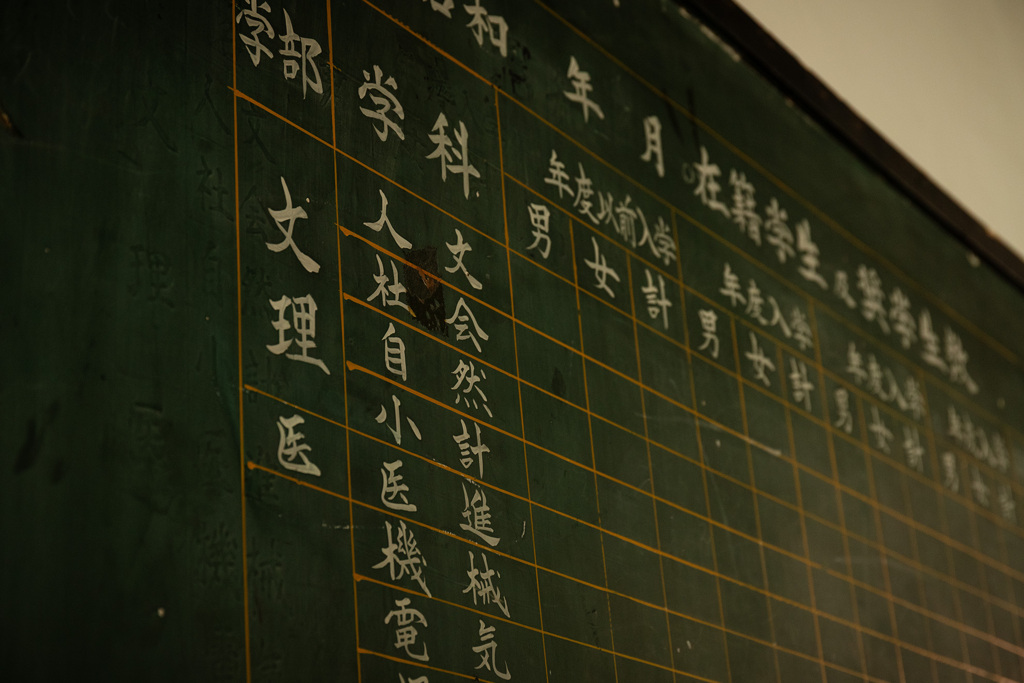 和 年 月 在籍学生及奨学生数
学部 学科 年度以前入学 年度入学 年度入学 年度入学
男 女 計 男 女 計 男 女 計 男 女 計
文理 人文
社会
自然
小計
医 医進
機械
電気